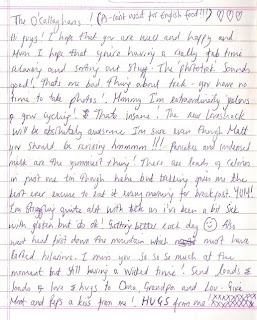 The O'Callaghans! (A-cant wait for English food!!!) ♡♡♡
Hi guys! I hope that you are well and happy and
Mum I hope that you're having a really fab time
relaxing and sorting out stuff. The 'phototrek' sounds
good! Thats one bad thing about trek - you have no
time to take photos'. Hmmm Im extraordinarily jealous
of your cycling! Thats insane! The new
will be absolutely awesome Im sure even though Matt
you should be revising hmmmm!!! Pancakes and condensed
milk are the yummiest thing! There are loads of calories
in just one tin though haha but trekking gives me the
best ever excuse to eat it every morning for breakfast. YUM!
Im struggling quite alot with trek as i've been a bit sick
with gluten but do ok! Getting better each day ☺ Also
went head first down the mountain which must have
looked hilarious. I miss you so so so much at the
moment but still having a wicked time! Send loads &
loads of love & hugs to Oma, Grandpa and Lou - Give
Moat and Pops a kiss from me! HUGS from me! XXXXXXXX